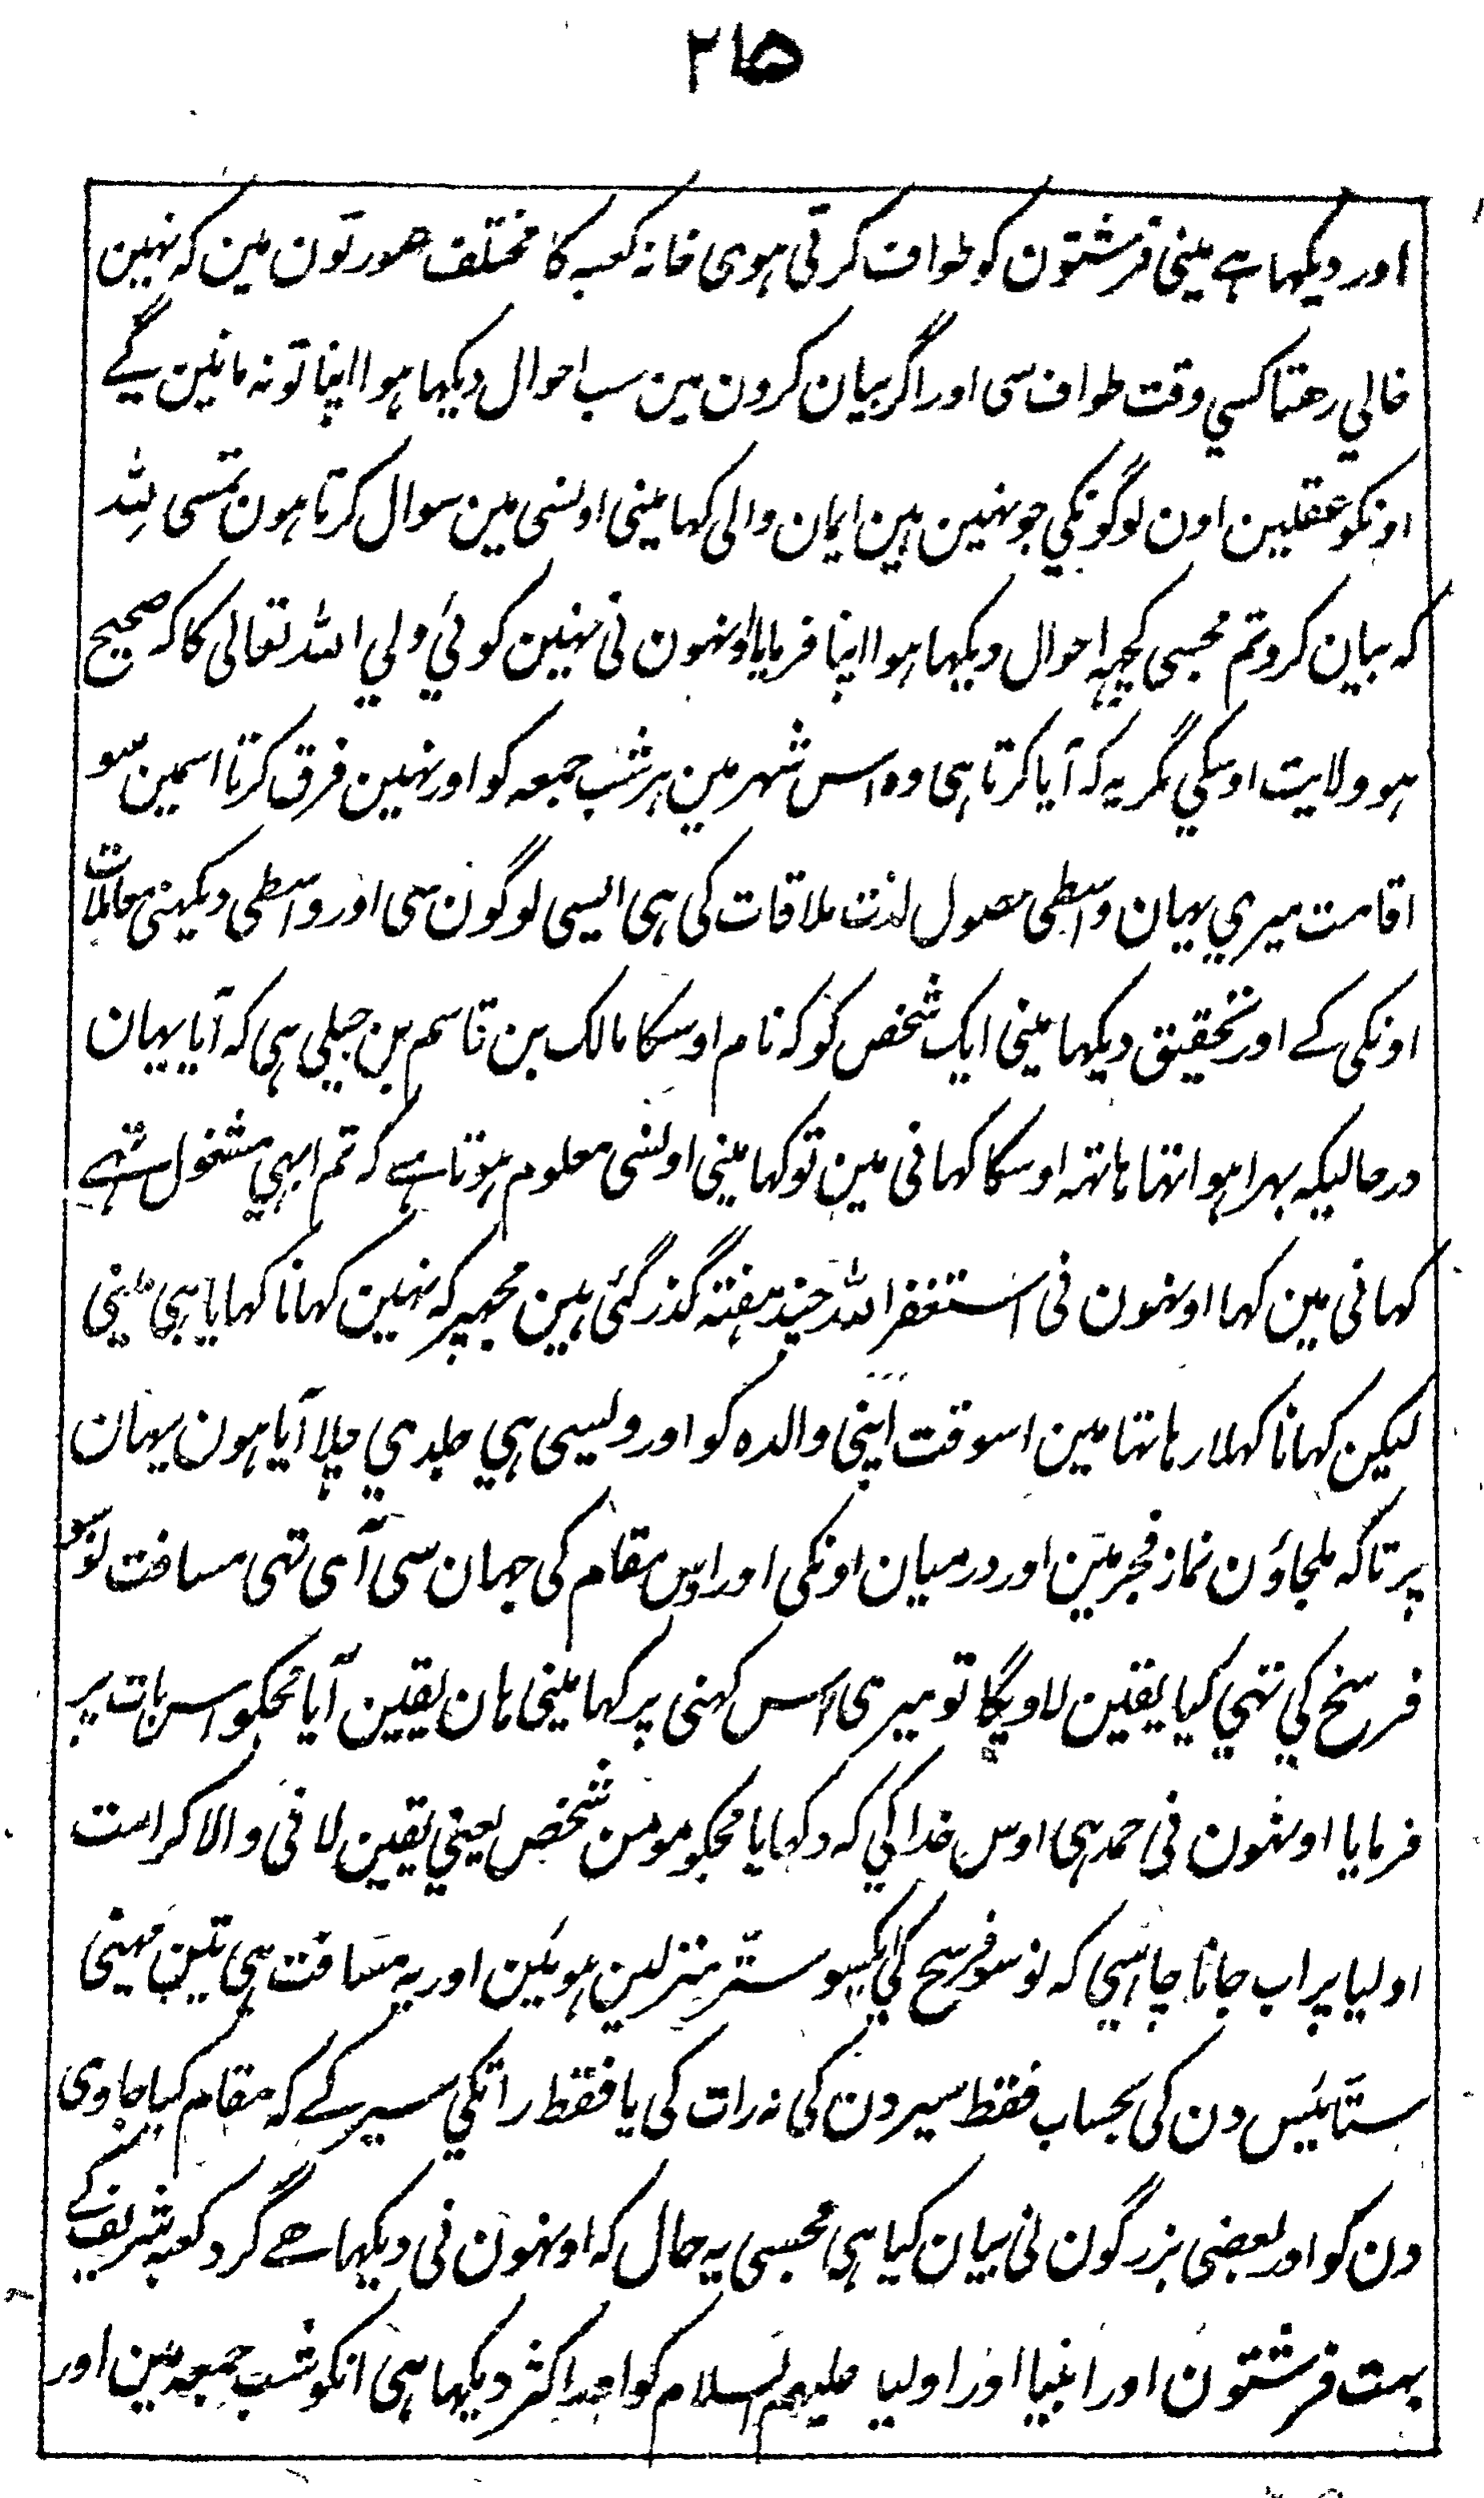 ۲۱۵
اور دیکہا ہے مینی فرشتون کو طواف کرتی ہوی خانہ کعبہ کا مختلف صورتون مین کہ نہین
خالي رھتا کسي وقت طواف سی اور اگر بیان کرون مین سب احوال دیکہا ہوا اپنا تو نہ مانین گے
اونکو عقلین اون لوگونکي جو نہین ہین ایمان والی کہا مینی اونسی مین سوال کرتا ہون تمسی للہ
کہ بیان کرو تم مجسی کچہہ احوال دیکہا ہوا اپنا فرمایا اونہون نی نہین کوئي ولي اللہ تعالی کا کہ صحیح
ہو ولایت اوسکي مگر یہ کہ آیا کرتا ہی وہ اس شہر مین ہر شب جمعہ کو اور نہین فرق کرتا اسمین سو
اقامت میري یہان واسطی حصول لذت ملاقات کی ہی ایسی لوگون سی اور واسطی دیکہنی معاملات
اونکی کے اور تحقیق دیکہا مینی ایک شخص کو کہ نام اوسکا مالک بن قاسم بن جبلی ہی کہ آیا یہان
درحالیکہ بہرا ہوا تہا ہاتہہ اوسکا کہانی مین تو کہا مینی اونسی معلوم ہوتا ہے کہ تم ابہي مشغول تہے
کہانی مین کہا اونہون نی استغفر اللہ چند ہفتہ گذر گئی ہین مجہپر کہ نہین کہانا کہایا ہی مینی
لیکن کہانا کہلا رہا تہا مین اسوقت اپنی والدہ کو اور ویسی ہي جلدي چلا آیا ہون یہان
پر تاکہ ملجاؤن نماز فجر مین اور درمیان اونکی اور اوس مقام کی جہان سی آی تہی مسافت نوسو
فرسخ کي تہي کیا یقین لاویگا تو میری اس کہنی پر کہا مینی ہان یقین آیا مجکو اس بات پر
فرمایا اونہون نی حمد ہی اوس خدا کي کہ دکہایا مجکو مومن شخص یعنی یقین لانی والا کرامت
اولیا پر اب جانا چاہئي کہ نوسو فرسخ کي ایکسو ستر منزلین ہوئین اور یہ مسافت ہی تین مہینی
ستائیس دن کی بحساب فقط سیر دن کی نہ رات کی یا فقط راتکي سیر کے کہ مقام کیا جاوی
دن کو اور بعضی بزرگون نی بیان کیا ہی مجسی یہ حال کہ اونہون نی دیکہا ھے گرد کعبہ شریف کے
بہت فرشتون اور انبیا اور اولیا علیہم السلام کو اور اکثر دیکہا ہی انکو شب جمعہ مین اور